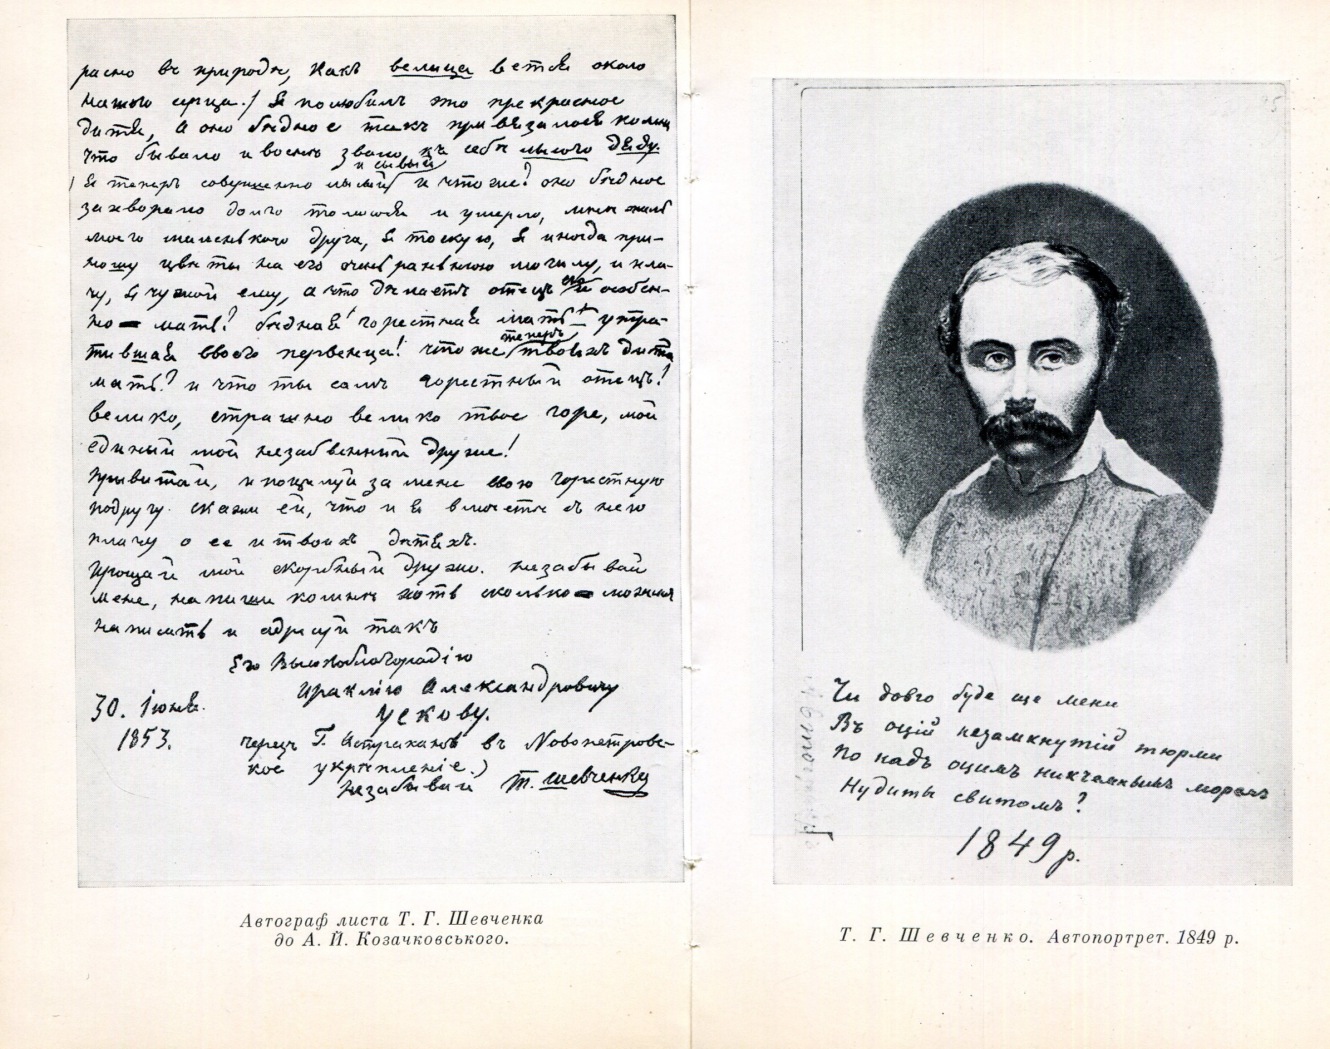 расно въ природѣ, какъ велица ветвя около
нашого серца.) Я полюбилъ это прекрасное
дитя, а оно бѣдное такъ привязалося ко мнѣ
что бывало и восне звало къ себѣ лысого дѣду.
и сывый
(я теперъ совершенно лысый и что же? оно бѣдное
захворало долго томилося и умерло, мнѣ жаль
моего маленького друга, я тоскую, я иногда при-
ношу цвѣты на его очень раннюю могилу, и пла-
чу, я чужой ему, а что дѣлаетъ отецъ его и особен-
но мать? бѣдная! горестная мать утра-
тившая своего первенца! что же теперь твоихъ дитя
мать? и что ты самъ горестный отецъ!
велико, страшно велико твое горе, мой
единый мой незабвенный друже!
Привитай, и поцилуй за мене свою горестную
подругу скажи ей, что и я вместе съ нею
плачу о ее и твоихъ дѣтяхъ.
Прощай мой скорбный друже. незабывай
мене, напиши комнѣ хоть сколько можна
написать и адресуй такъ
Его Высокоблагородію
Ираклію Александровичу
Ускову.
30. Іюня.
1853.
черезъ Г. Астрахань въ Новопетровс-
кое укрѣпленіе.)
Незабывай Т. Шевченка
Автограф листа Т. Г. Шевченка
до А. Й. Козачковського.
Чи довго буде ще мени
Въ оцій незамкнутій тюрми
По надъ оцимъ никчемнымъ моремъ
Нудиты свитомъ?
1849 р.
Т. Г. Шевченко. Автопортрет. 1849 р.